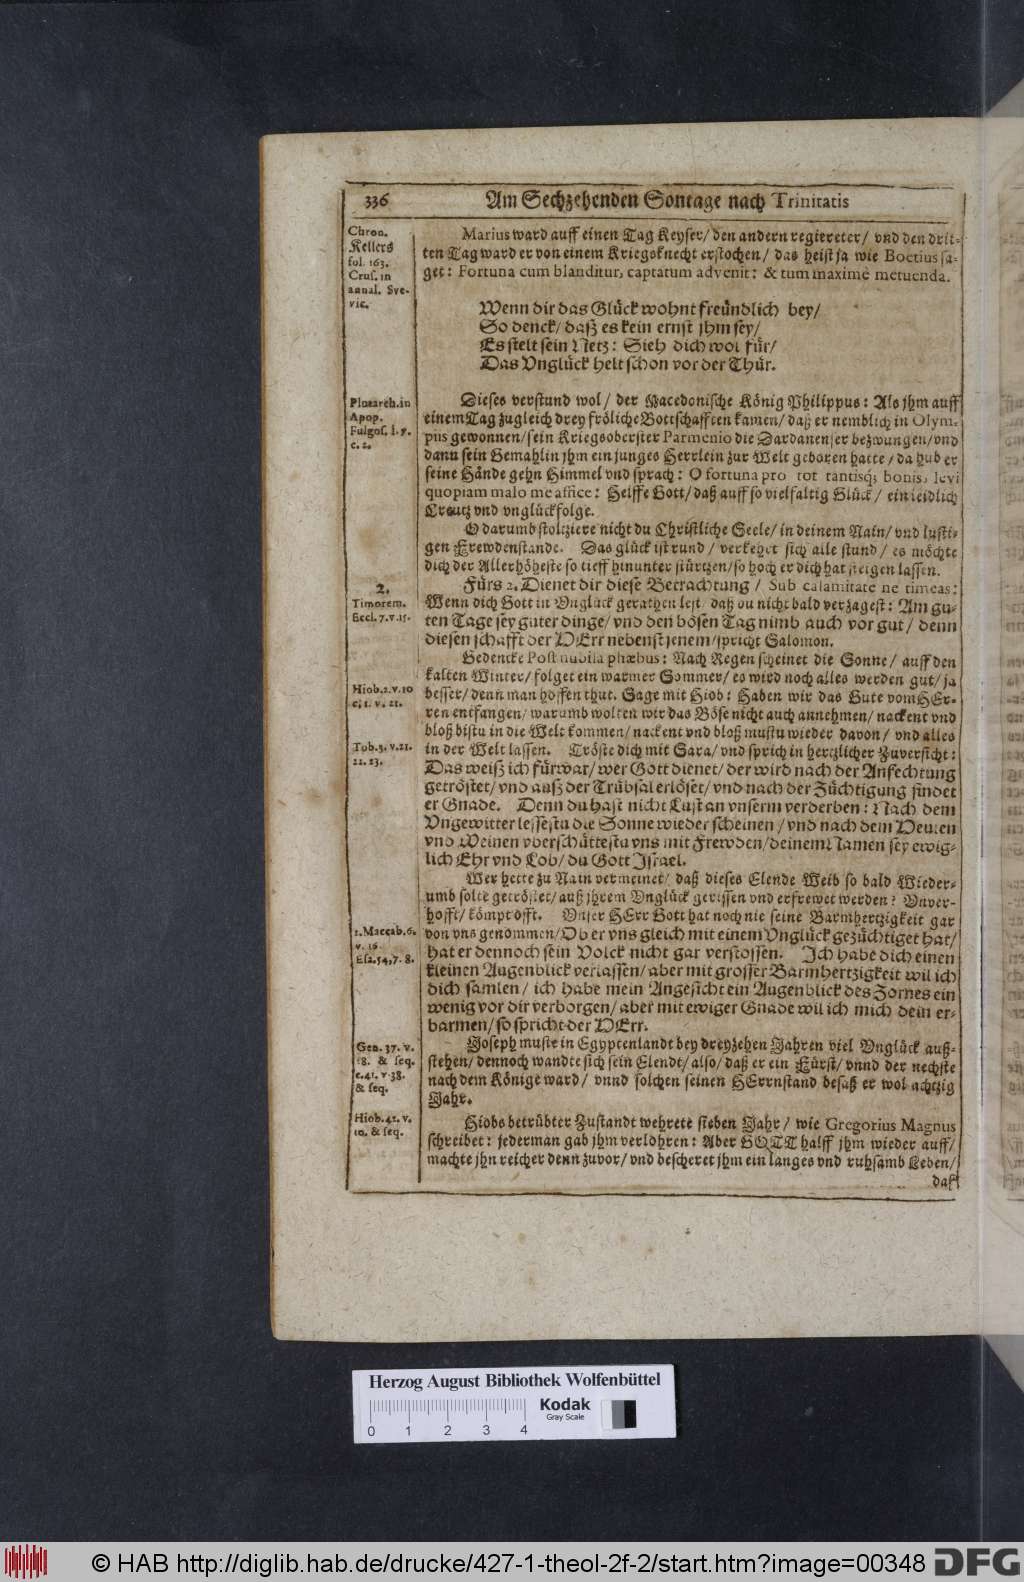 336 Am Sechzehenden Sontage nach Trinitatis
Chron.
Kellers
fol. 163.
Crus. in
annal. Sve-
vic.
Marius ward auff einen Tag Keyser/ den andern regiereter/ vnd den drit-
ten Tag ward er von einem Kriegsknecht erstochen/ das heist ja wie Boetius sa-
get: Fortuna cum blanditur, captatum advenit: & tum maximè metuenda.
Wenn dir das Glück wohnt freündlich bey/
So denck/ daß es kein ernst jhm sey/
Es stelt sein Netz: Sieh dich wol für/
Das Vnglück helt schon vor der Thür.
Plutarch. in
Apop.
Fulgos. l. 7.
c. 2.
Dieses verstund wol/ der Macedonische König Philippus: Als jhm auff
einem Tag zugleich drey fröliche Bottschafften kamen/ daß er nemblich in Olym-
piis gewonnen/ sein Kriegsoberster Parmenio die Dardanenser bezwungen/ vnd
dann sein Gemahlin jhm ein junges Herrlein zur Welt geboren hatte/ da hub er
seine Hände gehn Himmel vnd sprach: O fortuna pro tot tantisq́; bonis, levi
quopiam malo me affice: Helffe Gott/ daß auff so vielfaltig Glück/ ein leidlich
Creutz vnd vnglück folge.
O darumb stoltziere nicht du Christliche Seele/ in deinem Nain/ vnd lusti-
gen Frewdenstande. Das glück ist rund/ verkehet sich alle stund/ es möchte
dich der Allerhöheste so tieff hinunter stürtzen/ so hoch er dich hat steigen lassen.
2.
Timorem.
Eccl. 7. v. 15.
Fürs 2. Dienet dir diese Betrachtung/ Sub calamitate ne timeas:
Wenn dich Gott in Vnglück gerathen lest/ daß du nicht bald verzagest: Am gu-
ten Tage sey guter dinge/ vnd den bösen Tag nimb auch vor gut/ denn
diesen schafft der HErr nebenst jenem/ spricht Salomon.
Gedencke Post nubila phœbus: Nach Regen scheinet die Sonne/ auff den
kalten Winter/ folget ein warmer Sommer/ es wird noch alles werden gut/ ja
Hiob. 2. v. 10
c; 1. v. 21.
besser/ denn man hoffen thut. Sage mit Hiob: Haben wir das Gute vom HEr-
ren entfangen/ warumb wolten wir das Böse nicht auch annehmen/ nackent vnd
bloß bistu in die Welt kommen/ nackent vnd bloß mustu wieder davon/ vnd alles
Tob. 3. v. 21.
22. 23.
in der Welt lassen. Tröste dich mit Sara/ vnd sprich in hertzlicher Zuversicht:
Das weiß ich fürwar/ wer Gott dienet/ der wird nach der Anfechtung
getröstet/ vnd auß der Trübsal erlöset/ vnd nach der Züchtigung findet
er Gnade. Denn du hast nicht Lust an vnserm verderben: Nach dem
Vngewitter lessestu die Sonne wieder scheinen/ vnd nach dem Heulen
vnd Weinen vberschüttestu vns mit Frewden/ deinem Namen sey ewig-
lich Ehr vnd Lob/ du Gott Israel.
Wer hette zu Nain vermeinet/ daß dieses Elende Weib so bald Wieder-
umb solte getröstet/ auß jhrem Vnglück gerissen vnd erfrewet werden? Unver-
hofft/ kömpt offt. Unser HErr Gott hat noch nie seine Barmhertzigkeit gar
2. Maccab. 6.
v. 16
Esa. 54, 7. 8.
von vns genommen/ Ob er vns gleich mit einem Vnglück gezüchtiget hat/
hat er dennoch sein Volck nicht gar verstossen. Ich habe dich einen
kleinen Augenblick verlassen/ aber mit grosser Barmhertzigkeit wil ich
dich samlen/ ich habe mein Angesicht ein Augenblick des Zornes ein
wenig vor dir verborgen/ aber mit ewiger Gnade wil ich mich dein er-
barmen/ so spricht der HErr.
Gen. 37. v.
18. & seq.
c. 41. v. 38.
& seq.
Joseph muste in Egyptenlandt bey dreyzehen Jahren viel Vnglück auß-
stehen/ dennoch wandte sich sein Elendt/ also/ daß er ein Fürst/ vnnd der nechste
nach dem Könige ward/ vnnd solchen seinen HErrnstand besaß er wol achtzig
Jahr.
Hiob. 42. v.
10. & seq.
Hiobs betrübter Zustandt wehrete sieben Jahr/ wie Gregorius Magnus
schreibet: jederman gab jhm verlohren: Aber GOTT halff jhm wieder auff/
machte jhn reicher denn zuvor/ vnd bescheret jhm ein langes vnd ruhsamb Leben/
daß
Herzog August Bibliothek Wolfenbüttel
0 1 2 3 4
Kodak
Gray Scale
© HAB http://diglib.hab.de/drucke/427-1-theol-2f-2/start.htm?image=00348 DFG